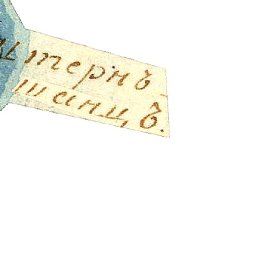 штернъ
шанцъ.